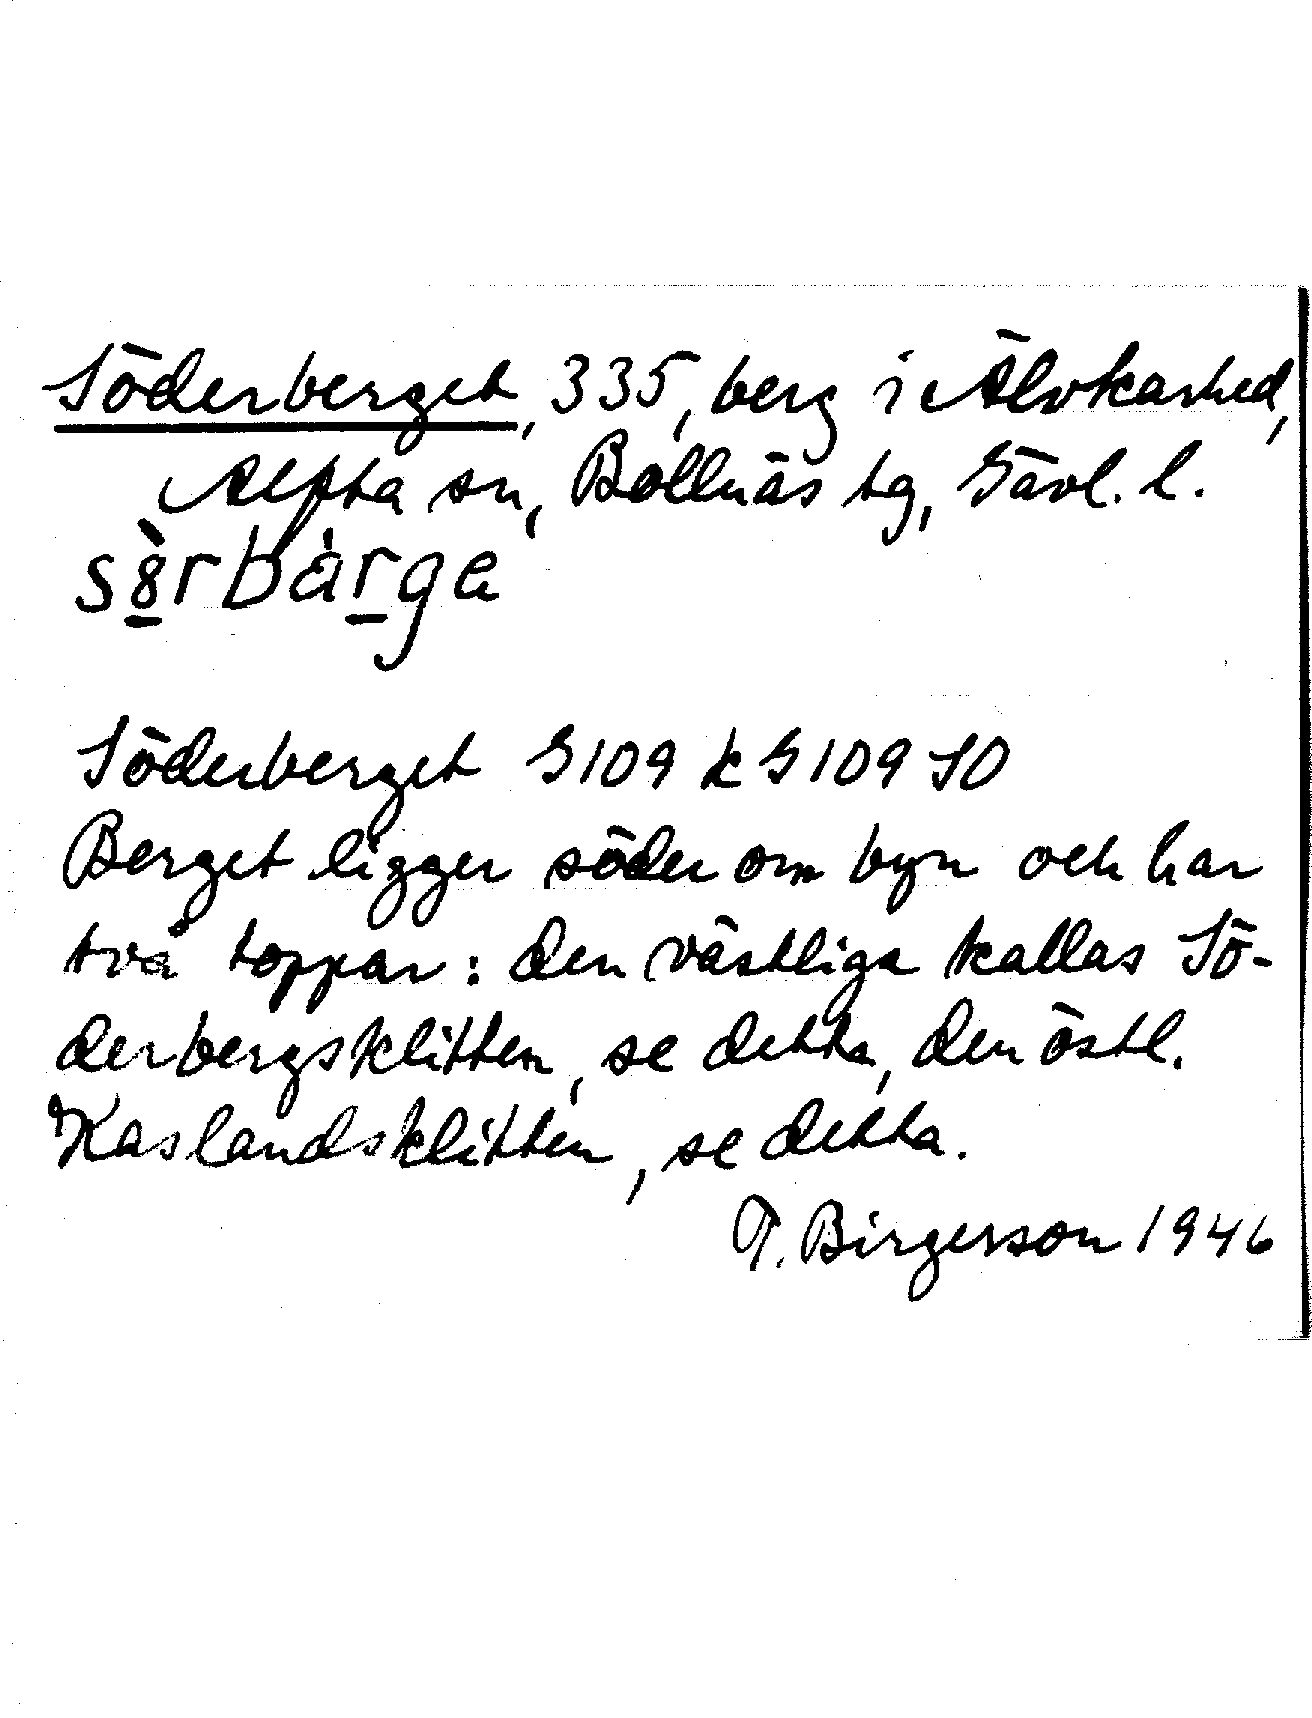 Söderberget, 335, berg i Älvkarhed,
Alfta sn, Bollnäs tg, Gävl. l.
sȣ̀rbàrga
Söderberget G109 k G109 SO
Berget ligger söder om byn och har
två toppar: den västliga kallas Sö-
derbergsklitten, se detta, den östl.
Kaslandsklitten, se detta.
T. Birgersson 1946